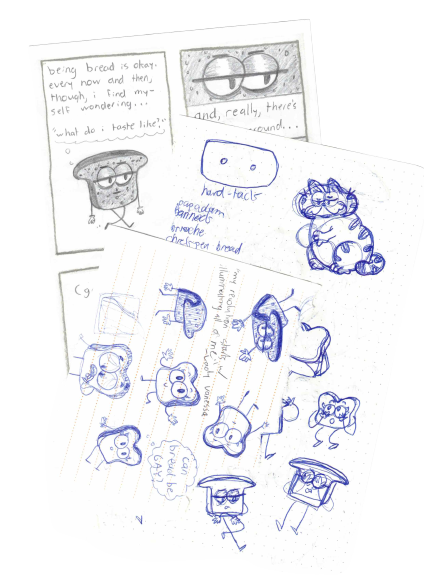 being bread is okay.
every now and then,
though, i find my-
self wondering...
"what do i taste like?"
and, really, there's
round...
hard-tack
papadam
bannock
brioche
bread
"my revolution starts w/
illuminating all of me."
vanessa
can
bread be
GAY?